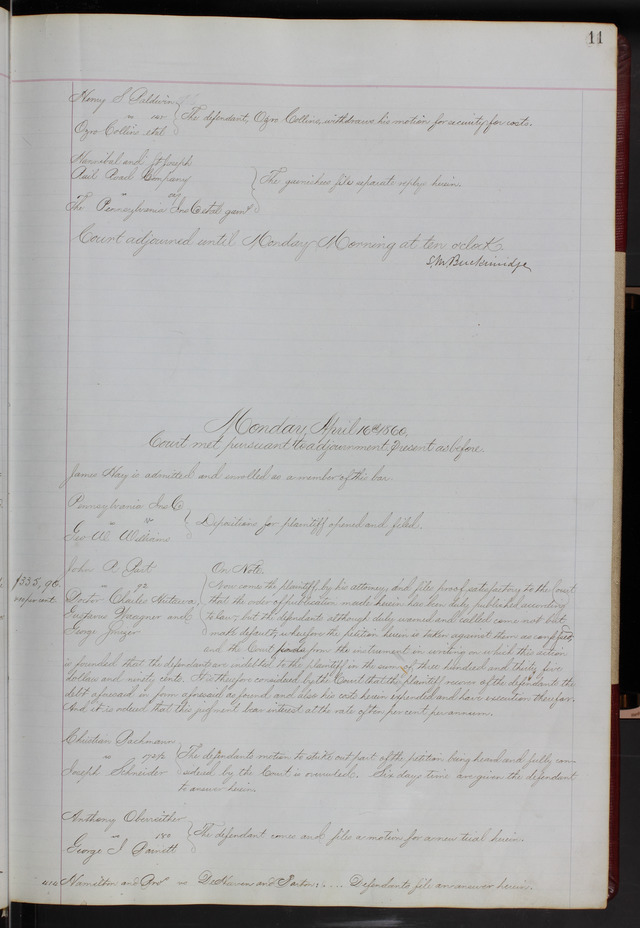 11
Henry S Baldwin
" 141 The defendant, Ozro Collins, withdraws his motion for security for costs.
Ozro Collins etal
Hannibal and St Joseph
Rail Road Company
" The garnishees file separate replys herein.
The Pennsylvania Ins Co etal garnd
Court adjourned until Monday Morning at ten oclock
S, M, Breckinridge
Monday, April 16th 1860,
Court met pursuant to adjournment, Present as before.
James Hay is admitted and enrolled as a member of this bar.
Pennsylvania Ins Co
" Depositions for plaintiff opened and filed.
Geo W. Williams
John P. Post On Note.
$335,90 " 92 Now comes the plaintiff, by his attorney and files proof, satisfactory to the Court
10 per cent Charles
that the order of publication made herein has been duly published according
Gustavus Wagner and to law; but the defendants although duly warned and called come not but
George make default; wherefore the petition herein is taken against them as confessed,
and the Court finds from the instrument in writing on which this action
is founded that the defendants are indebted to the plaintiff in the sum of three hundred and thirty five
dollars and ninety cents. It is therefore considered by the Court that the plaintiff recover of the defendants the
debt aforesaid in form aforesaid as found, and also his costs herein expended and have execution therefor.
And it is ordered that this judgment bear interest at the rate of ten per cent per annum.
Christian Bachmann
" 172½ The defendants motion to strike out part of the petition being heard and fully con-
Joseph Schneider sidered by the Court is overruled. Six days time are given the defendant
to answer herein
Anthony Oberreither
" 180 The defendant comes and files a motion for a new trial herein.
George I Barnett
414 Hamilton and Bro vs DeHaven and : .... Defendants file an answer herein.